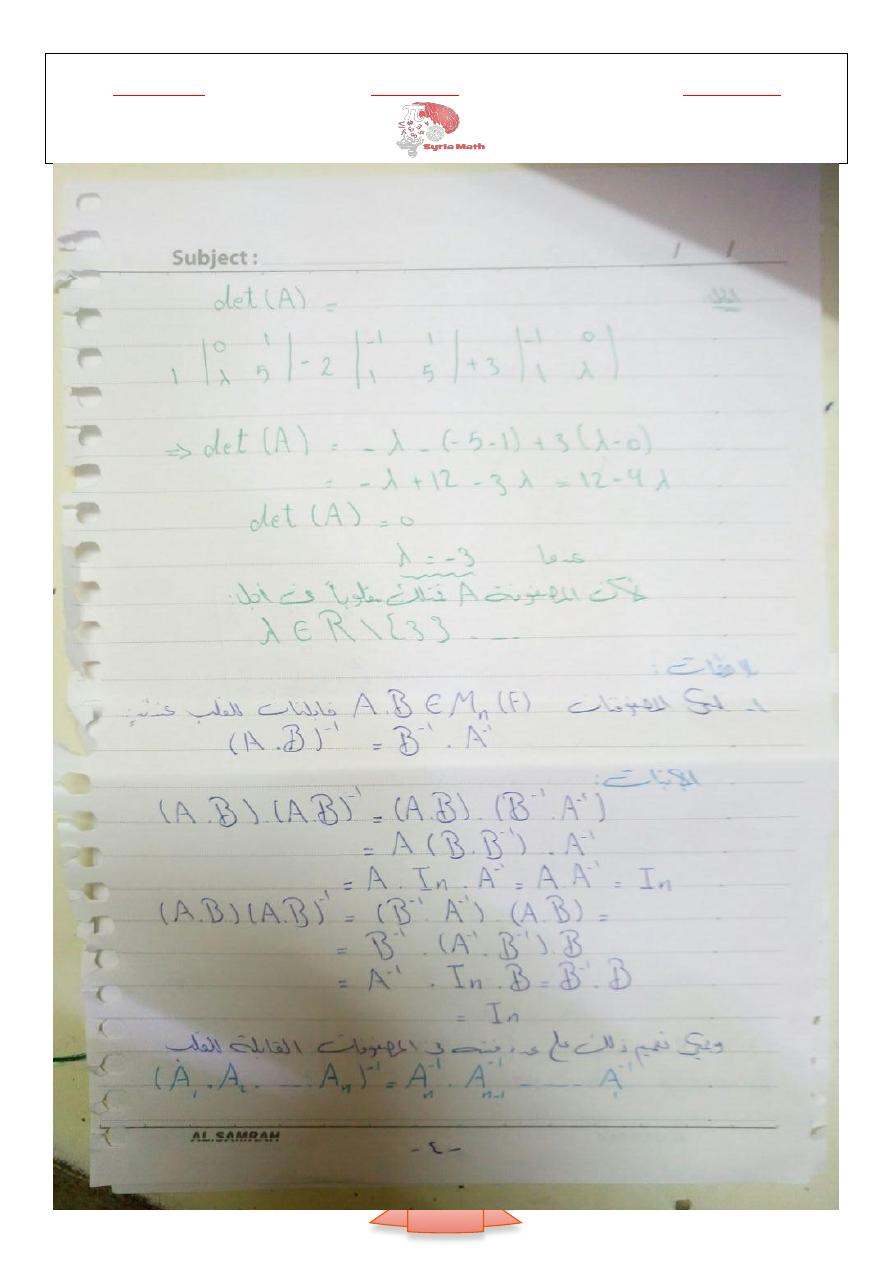 Syria Math
Subject : / /
الحل:
det(A) =
1 | 0 1 | - 2 | -1 1 | + 3 | -1 0 |
| λ 5 | | 1 5 | | 1 λ |
⇒ det (A) = - λ - (-5-1) + 3 (λ-0)
= - λ + 12 - 3 λ = 12 - 4 λ
det (A) = 0
عندما λ = -3
المصفوفة A تمتلك مقلوباً من أجل:
λ ∈ R \ {3} ....
ملاحظات:
1- لتكن المصفوفات A.B ∈ Mn (F) قابلات للقلب عندئذٍ:
(A.B)⁻¹ = B⁻¹ . A⁻¹
الإثبات:
(A.B).(A.B)⁻¹ = (A.B).(B⁻¹.A⁻¹)
= A (B.B⁻¹) . A⁻¹
= A . In . A⁻¹ = A.A⁻¹ = In
(A.B)(A.B)⁻¹ = (B⁻¹.A⁻¹).(A.B) =
= B⁻¹ . (A⁻¹.B⁻¹).B
= A⁻¹ . In . B = B⁻¹.B
= In
تعميم ذلك على عدد منته من المصفوفات القابلة للقلب
(A₁.A₂. .... Aₙ)⁻¹ = Aₙ⁻¹ . Aₙ₋₁⁻¹ ...... A₁⁻¹
AL.SAMRAH
- ٤ -